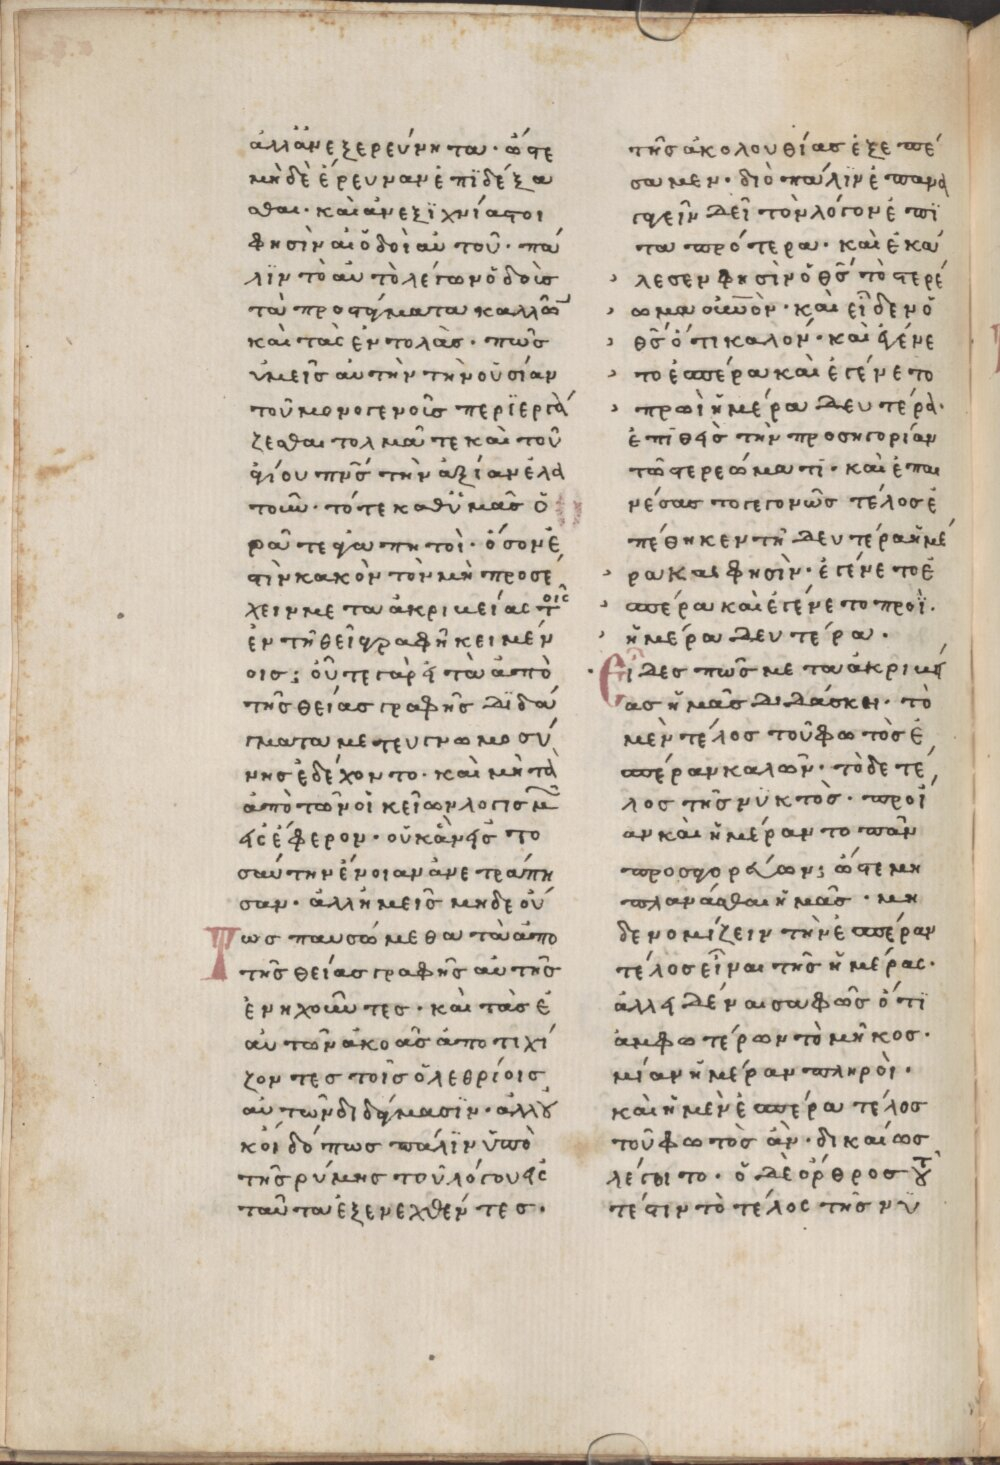 ἀλλ' ἀνεξερεύνητα · ὥστε
μηδὲ ἔρευναν ἐπϊδέξα
σθαι · καὶ ἀνεξϊχνίαστοι
φησὶν αἱ ὁδοὶ αὐτοῦ · πά
λϊν τὸ αὐτὸ λέγων ὁδοὺς
τὰ προστάγματα καλλῶν
καὶ τὰς ἐντολὰς · πῶς
ὑμεῖς αὐτὴν τὴν οὐσίαν
τοῦ μονογενοῦς περϊεργά
ζεσθαι τολμᾶτε καὶ τοῦ
ἁγίου πν̅ς τὴν ἀξίαν ἐλα
τοῦν · τότε καθ' ὑμᾶς ὁ
ρᾶτε ἀγαπητοὶ · ὅσον ἐ
στὶν κακὸν τὸν μὴ προσέ
χειν μετὰ ἀκριβείας τοῖς
ἐν τῆ θεία γραφῆ κειμέν
οις ; οὔτε γὰρ εἰ τὰ ἀπὸ
τῆς θείας γραφῆς δϊδά
γματα μετ' εὐγνωμοσύ
νης ἐδέχοντο · καὶ μὴ τὰ
ἀπὸ τῶν οἰκείων λογισμ
εἰσέφερον · οὐκ ἂν εἰς το
σαύτην ἔνοιαν ἀνετράπη
σαν · ἀλλ' ἡμεῖς μηδε οὕ
τως παυσώμεθα τὰ ἀπο
τῆς θείας γραφῆς αὐτῆς
ἐνηχοῦντες · καὶ τὰς ἑ
αυτῶν ἀκοὰς ἀποτιχί
ζοντες τοῖς ὀλεθρίοις
αὐτῶν διδάγμασϊν · ἀλλ' οὐ
κ οἶδ' ὅπως πάλϊν ὑπὸ
τῆς ρύμης τοῦ λόγου εἰς
ταῦτα ἐξενεχθέντες ·
τῆς ἀκολουθίας ἐξεπέ
σαμεν · διὸ πάλϊν ἐπανα
γαγεῖν δεῖ τὸν λόγον ἐπϊ
τὰ πρότερα · καὶ ἐκά
λεσεν φησὶν ὁ θς τὸ στερέ
ωμα οὐνον · καὶ εἶδεν ὁ
θς ὅτι καλόν · καὶ ἐγένε
το ἑσπέρα καὶ ἐγένετο
πρωὶ ἡμέρα δευτέρα ·
ἐπιθεὶς τὴν προσηγορίαν
τῶ στερεώματι · καὶ ἐπαι
νέσας το γεγονῶς τέλος ἐ
πέθηκεν τῆ δευτέρα ἡμέ
ρα καὶ φησὶν · ἐγένετο ἑ
σπέρα καὶ ἐγένετο προϊ ·
ἡμέρα δευτέρα ·
Εἶδες πῶς μετὰ ἀκριβεί
ας ἡμᾶς διδάσκει · τὸ
μὲν τέλος τοῦ φωτὸς ἑ
σπέραν καλῶν · τὸ δε τέ
λος τῆς νϋκτὸς · προΐ
αν καὶ ἡμέραν το πᾶν
προσαγορεύων ; ὥστε μη
πλανᾶσθαι ἡμᾶς · μη
δε νομίζειν τὴν ἑσπέραν
τέλος εἶναι τῆς ἡμέρας ·
ἀλλ' εἰδέναι σαφῶς ὅτϊ
ἀμφωτέρων τὸ μῆκος ·
μίαν ἡμέραν πληροὶ ·
καὶ ἡ μὲν ἑσπέρα τέλος
τοῦ φωτὸς ἂν · δικαίως
λέγοιτο · ὁ δὲ ὄρθρος τοῦ
τέστιν τὸ τέλος τῆς νϋ